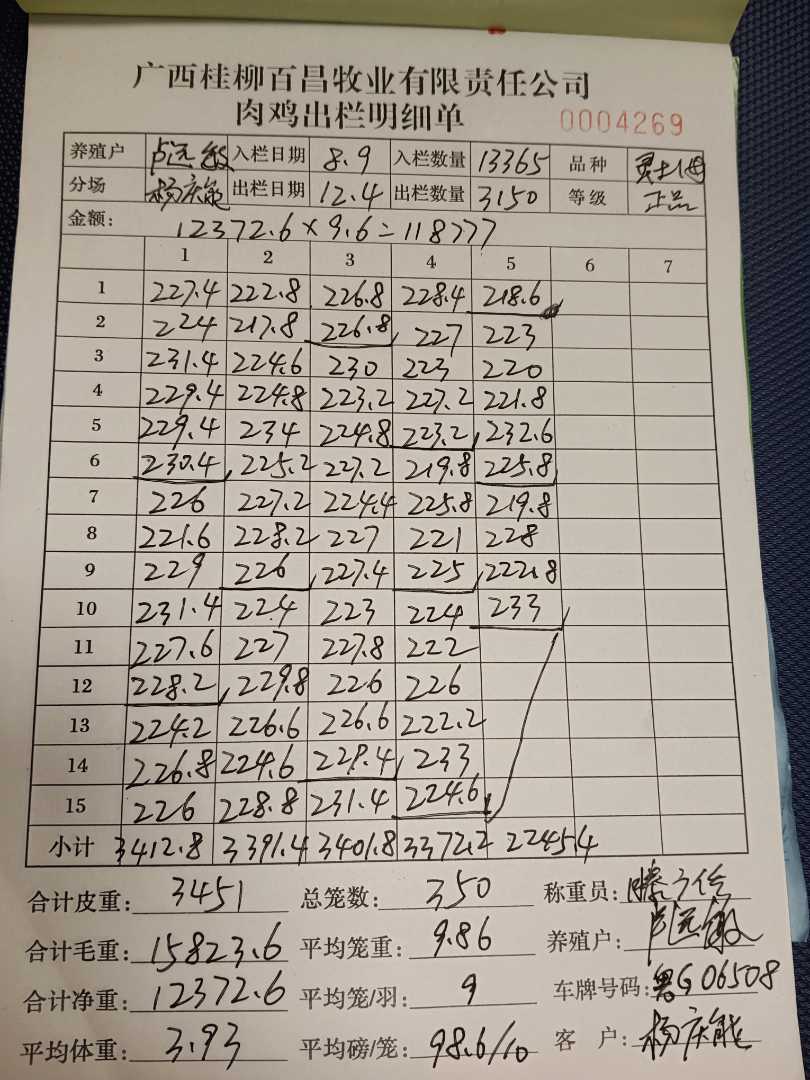 广西桂柳百昌牧业有限责任公司
肉鸡出栏明细单 0004269
养殖户 卢远敏 入栏日期 8.9 入栏数量 13365 品种
分场 杨庆能 出栏日期 12.4 出栏数量 3150 等级 正品
金额: 12372.6×9.6=118777
1 2 3 4 5 6 7
1 227.4 222.8 226.8 228.4 218.6
2 224 217.8 226.8 227 223
3 231.4 224.6 230 223 220
4 229.4 224.8 223.2 227.2 221.8
5 229.4 234 224.8 223.2 232.6
6 230.4 225.2 227.2 219.8 225.8
7 226 227.2 224.4 225.8 219.8
8 221.6 228.2 227 221 228
9 229 226 227.4 225 222.8
10 231.4 224 223 224 233
11 227.6 227 227.8 222
12 228.2 229.8 226 226
13 224.2 226.6 226.6 222.2
14 226.8 224.6 229.4 233
15 226 228.8 231.4 224.6
小计 3412.8 3391.4 3401.8 3372.2 2245.4
合计皮重: 3451 总笼数: 350 称重员:
合计毛重: 15823.6 平均笼重: 9.86 养殖户: 卢远敏
合计净重: 12372.6 平均笼/羽: 9 车牌号码: 粤G06508
平均体重: 3.93 平均磅/笼: 98.6/10 客户: 杨庆能